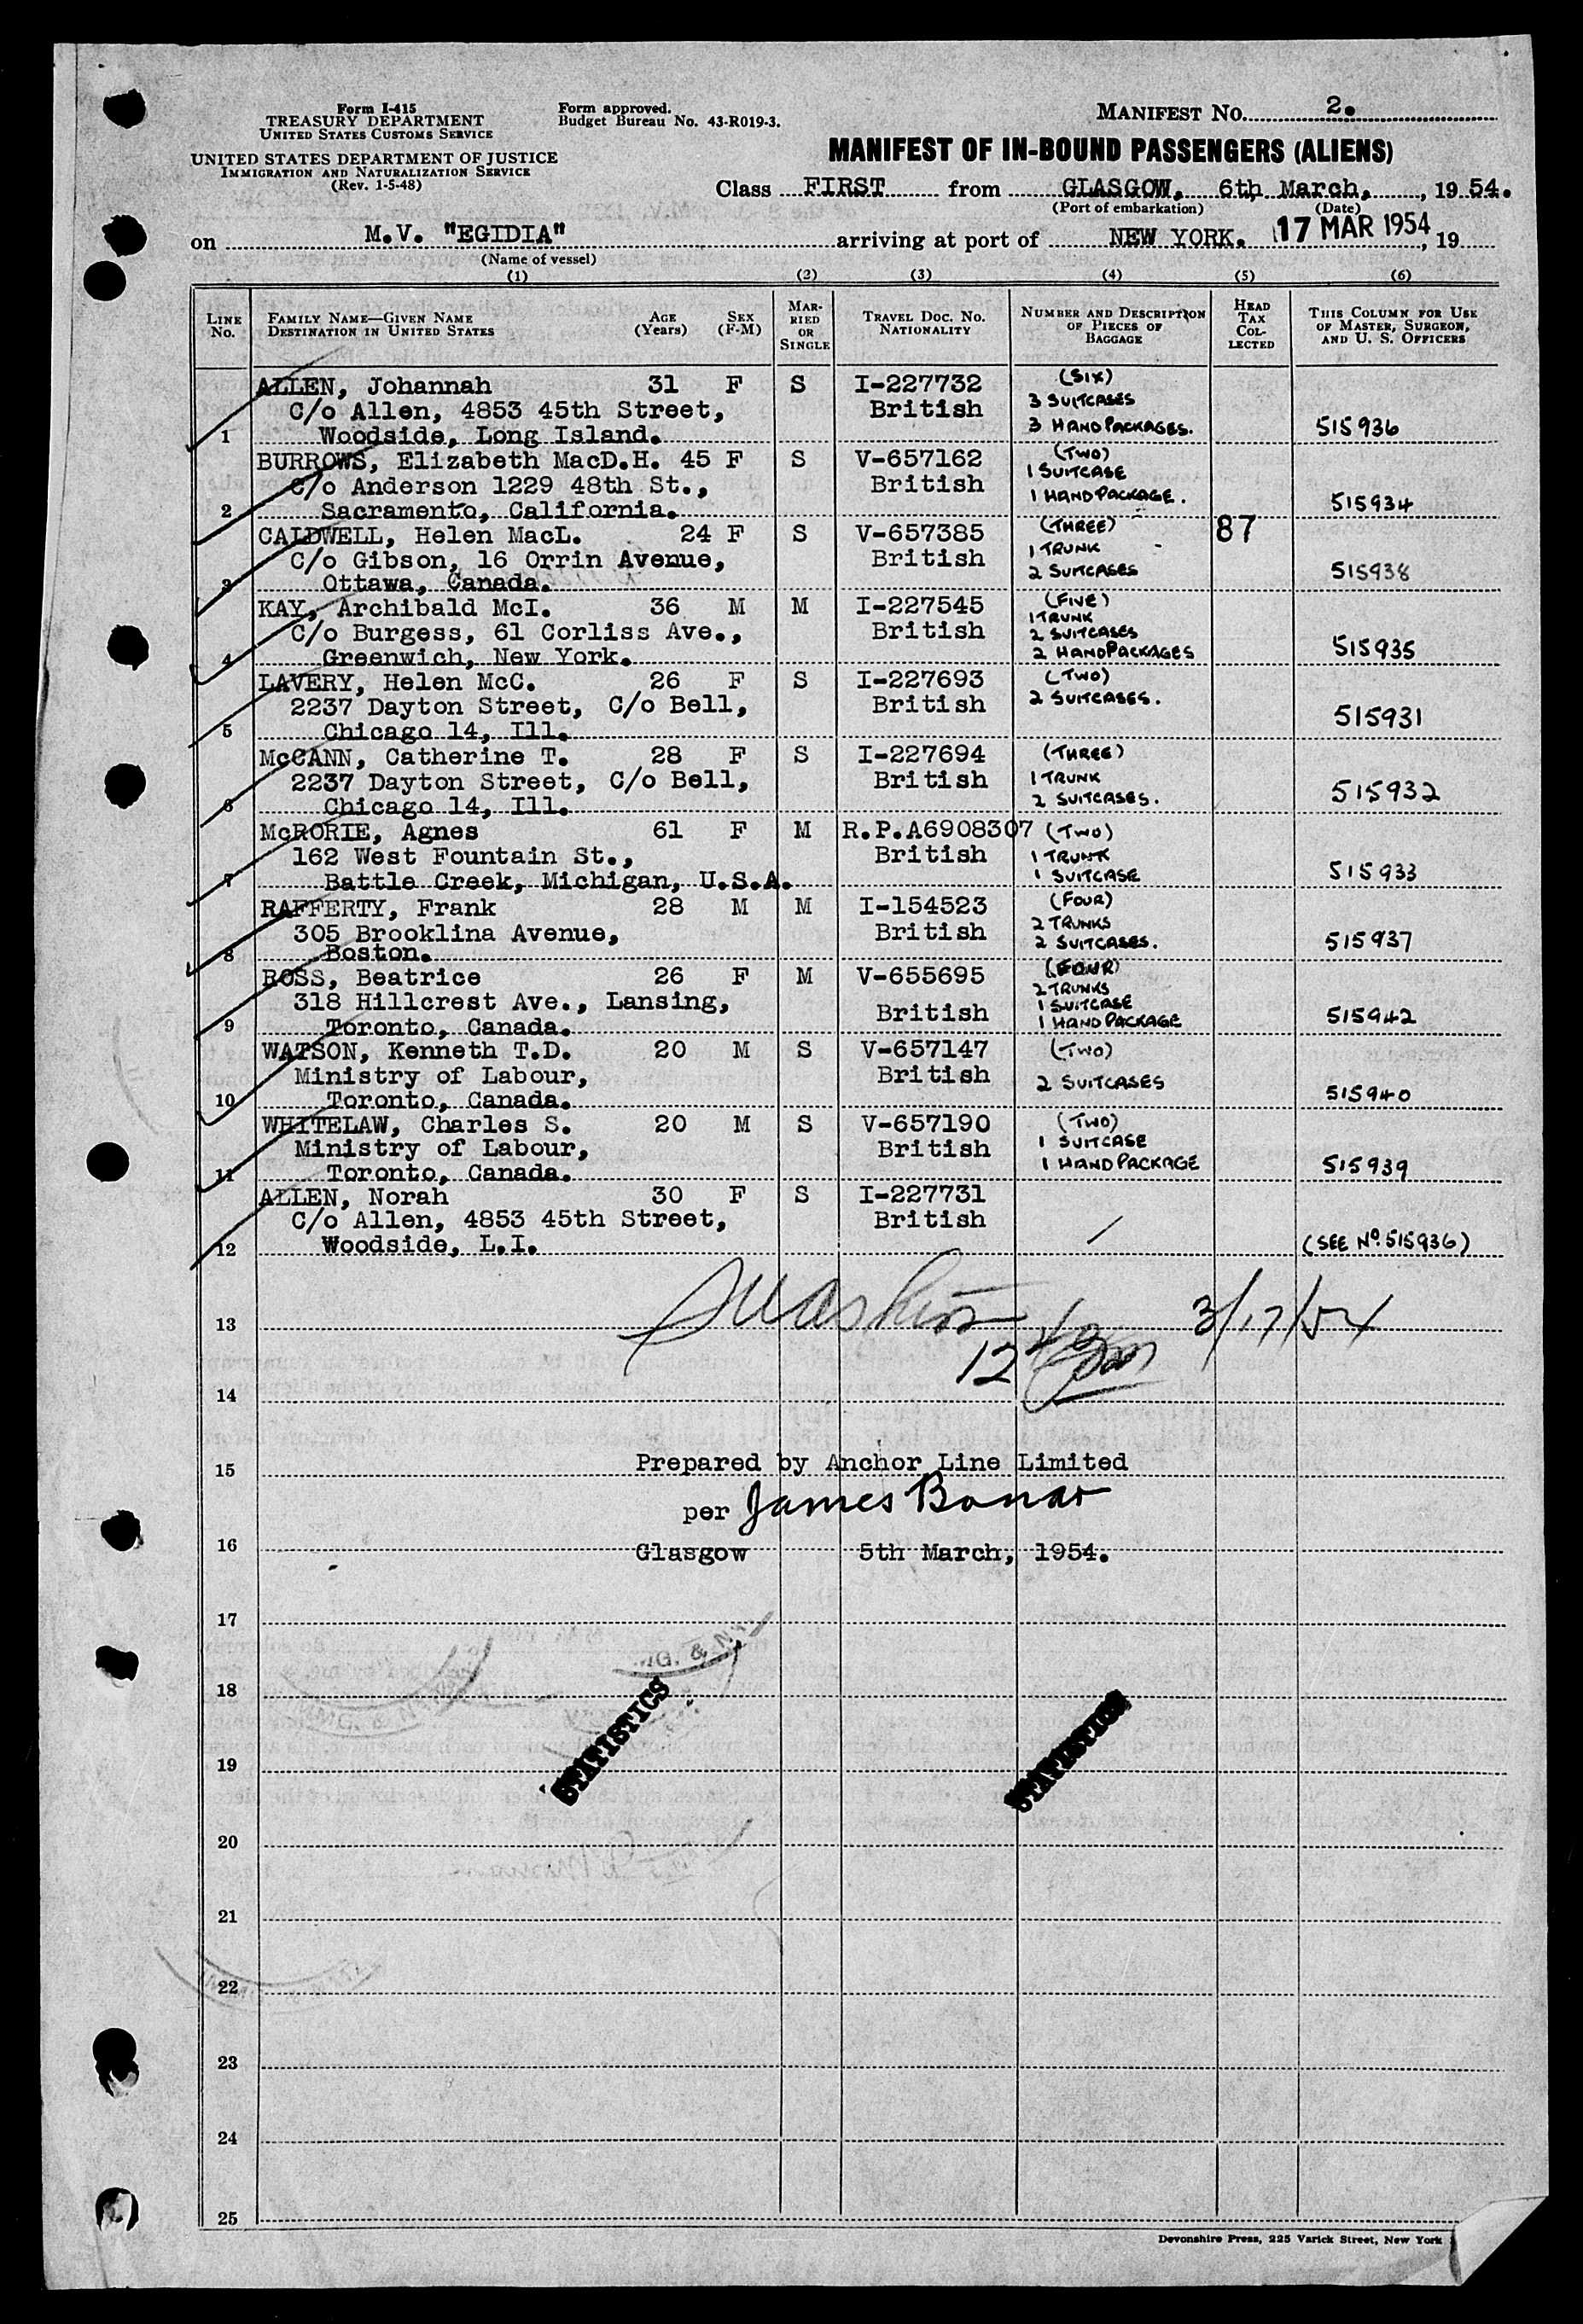 Form I-415
TREASURY DEPARTMENT
UNITED STATES CUSTOMS SERVICE
UNITED STATES DEPARTMENT OF JUSTICE
IMMIGRATION AND NATURALIZATION SERVICE
(Rev. 1-5-48)
Form approved.
Budget Bureau No. 43-R019-3.
MANIFEST No. 2.
MANIFEST OF IN-BOUND PASSENGERS (ALIENS)
Class FIRST from GLASGOW, 6th March, , 19 54.
(Port of embarkation) (Date)
on M.V. "EGIDIA" arriving at port of NEW YORK. 17 MAR 1954, 19
(Name of vessel)
(1) (2) (3) (4) (5) (6)
LINE No. FAMILY NAME—GIVEN NAME DESTINATION IN UNITED STATES AGE (Years) SEX (F-M) MARRIED OR SINGLE TRAVEL DOC. No. NATIONALITY NUMBER AND DESCRIPTION OF PIECES OF BAGGAGE HEAD TAX COLLECTED THIS COLUMN FOR USE OF MASTER, SURGEON, AND U. S. OFFICERS
ALLEN, Johannah 31 F S I-227732 (SIX)
C/o Allen, 4853 45th Street, British 3 SUITCASES
1 Woodside, Long Island. 3 HANDPACKAGES. 515936
BURROWS, Elizabeth MacD.H. 45 F S V-657162 (TWO)
C/o Anderson 1229 48th St., British 1 SUITCASE
2 Sacramento, California. 1 HANDPACKAGE. 515934
CALDWELL, Helen MacL. 24 F S V-657385 (THREE) 87
C/o Gibson, 16 Orrin Avenue, British 1 TRUNK
3 Ottawa, Canada. 2 SUITCASES 515938
KAY, Archibald McI. 36 M M I-227545 (FIVE)
1 TRUNK
C/o Burgess, 61 Corliss Ave., British 2 SUITCASES
4 Greenwich, New York. 2 HANDPACKAGES 515935
LAVERY, Helen McC. 26 F S I-227693 (TWO)
2237 Dayton Street, C/o Bell, British 2 SUITCASES.
5 Chicago 14, Ill. 515931
McCANN, Catherine T. 28 F S I-227694 (THREE)
2237 Dayton Street, C/o Bell, British 1 TRUNK
6 Chicago 14, Ill. 2 SUITCASES. 515932
McRORIE, Agnes 61 F M R.P.A6908307 (TWO)
162 West Fountain St., British 1 TRUNK
7 Battle Creek, Michigan, U.S.A. 1 SUITCASE 515933
RAFFERTY, Frank 28 M M I-154523 (FOUR)
305 Brooklina Avenue, British 2 TRUNKS
8 Boston. 2 SUITCASES. 515937
ROSS, Beatrice 26 F M V-655695 (FOUR)
2 TRUNKS
318 Hillcrest Ave., Lansing, British 1 SUITCASE
9 Toronto, Canada. 1 HANDPACKAGE 515942
WATSON, Kenneth T.D. 20 M S V-657147 (TWO)
Ministry of Labour, British 2 SUITCASES
10 Toronto, Canada. 515940
WHITELAW, Charles S. 20 M S V-657190 (TWO)
Ministry of Labour, British 1 SUITCASE
11 Toronto, Canada. 1 HANDPACKAGE 515939
ALLEN, Norah 30 F S I-227731
C/o Allen, 4853 45th Street, British
12 Woodside, L.I. (SEE No. 515936)
13 3/17/54
12
14
15 Prepared by Anchor Line Limited
per James Bonar
16 Glasgow 5th March, 1954.
17
18
STATISTICS STATISTICS
19
20
21
22
23
24
25
Devonshire Press, 225 Varick Street, New York